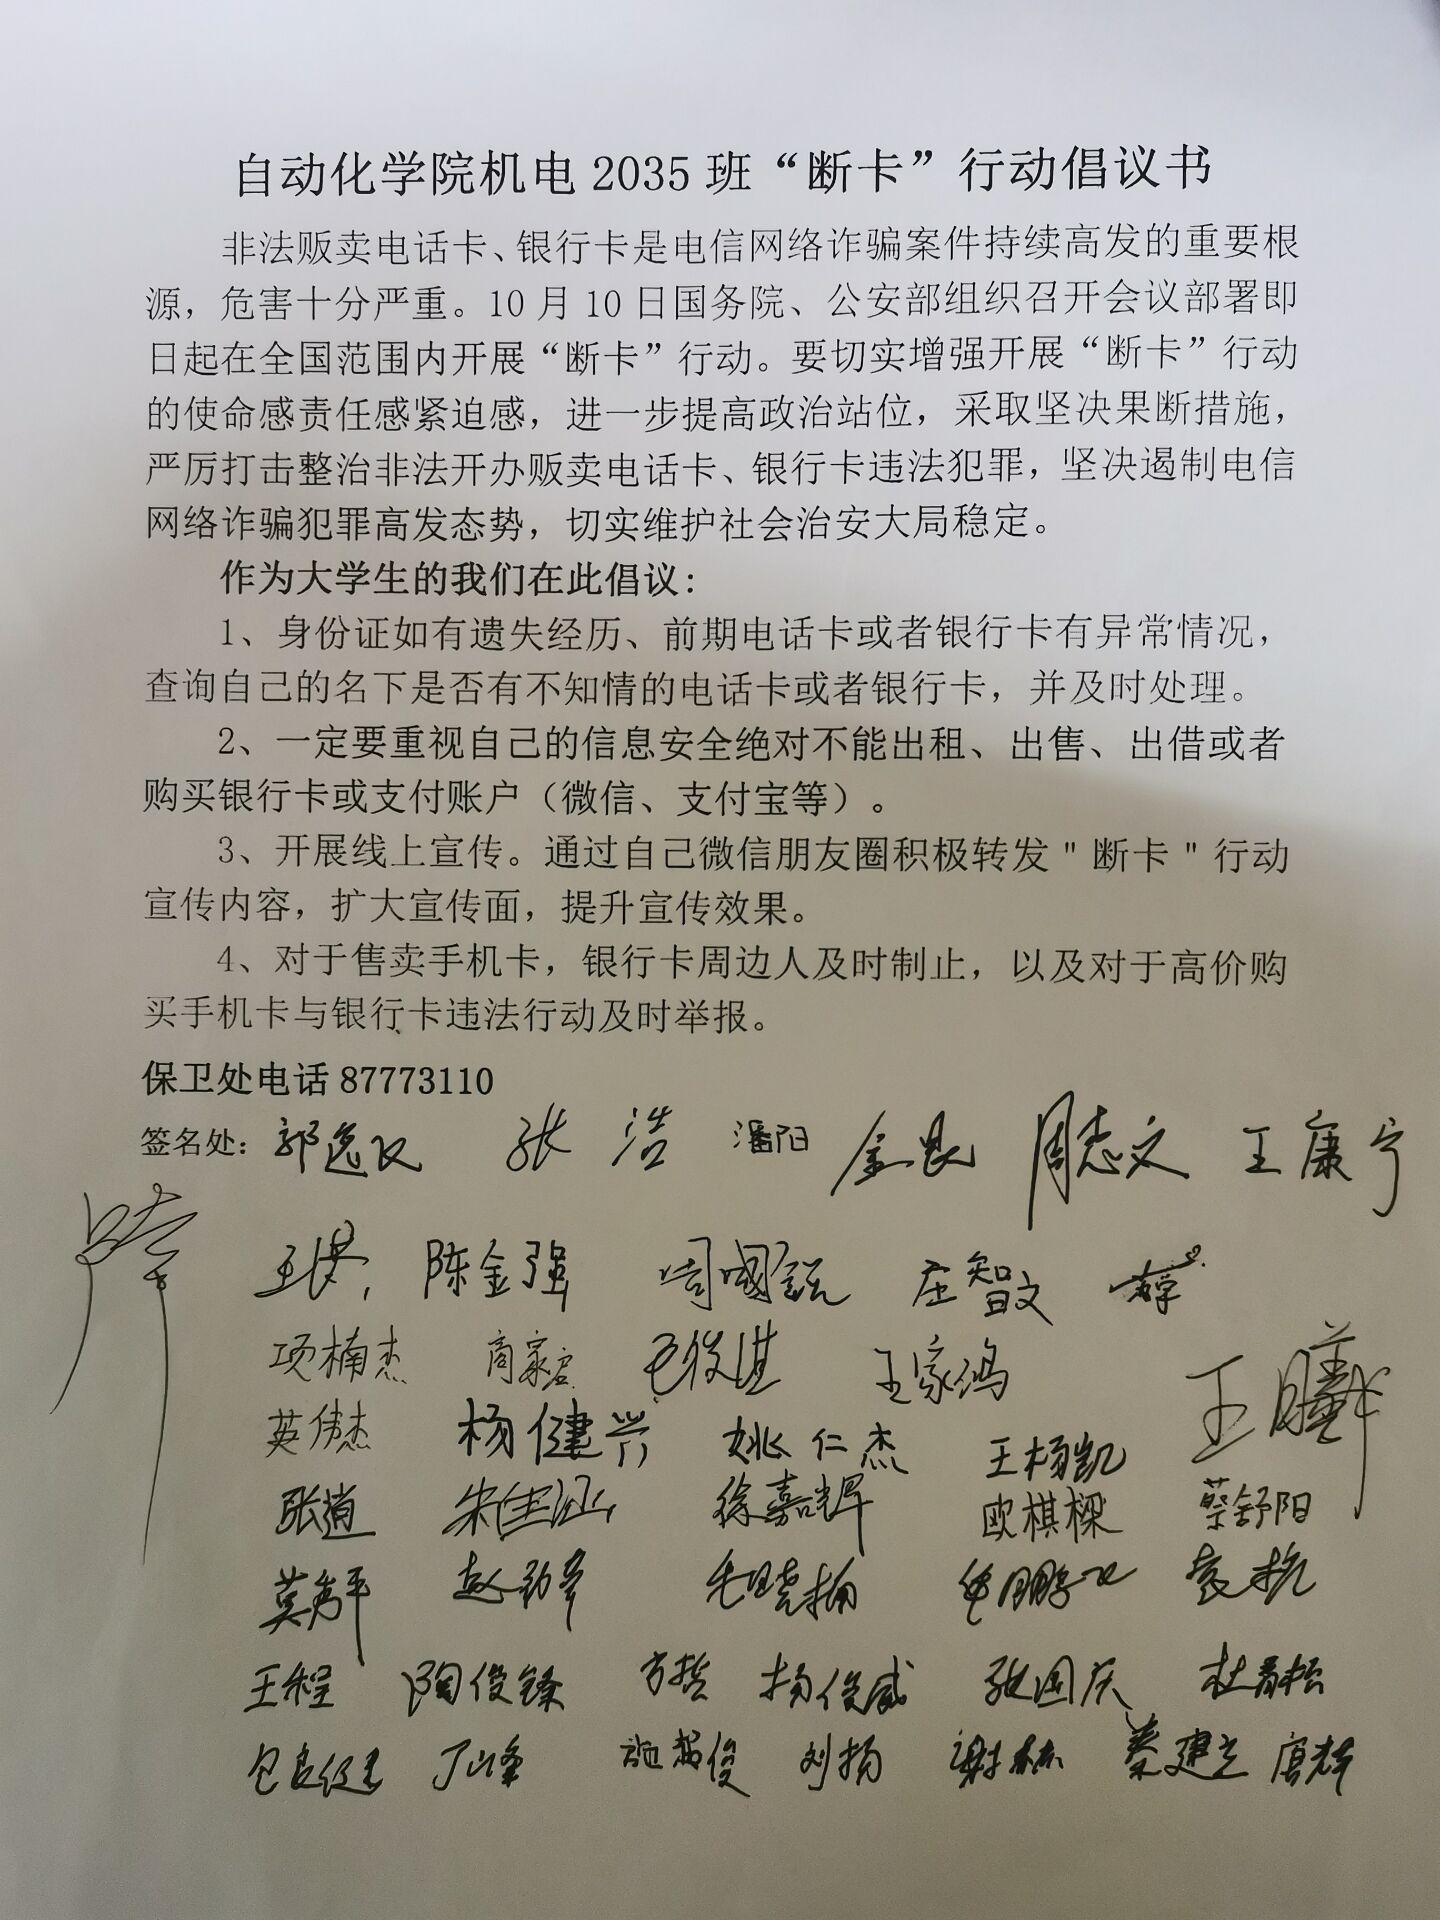 自动化学院机电2035班“断卡”行动倡议书
非法贩卖电话卡、银行卡是电信网络诈骗案件持续高发的重要根
源，危害十分严重。10月10日国务院、公安部组织召开会议部署即
日起在全国范围内开展“断卡”行动。要切实增强开展“断卡”行动
的使命感责任感紧迫感，进一步提高政治站位，采取坚决果断措施，
严厉打击整治非法开办贩卖电话卡、银行卡违法犯罪，坚决遏制电信
网络诈骗犯罪高发态势，切实维护社会治安大局稳定。
作为大学生的我们在此倡议:
1、身份证如有遗失经历、前期电话卡或者银行卡有异常情况，
查询自己的名下是否有不知情的电话卡或者银行卡，并及时处理。
2、一定要重视自己的信息安全绝对不能出租、出售、出借或者
购买银行卡或支付账户（微信、支付宝等）。
3、开展线上宣传。通过自己微信朋友圈积极转发"断卡"行动
宣传内容，扩大宣传面，提升宣传效果。
4、对于售卖手机卡，银行卡周边人及时制止，以及对于高价购
买手机卡与银行卡违法行动及时举报。
保卫处电话87773110
签名处: 张浩 潘阳 周志文 王康宁
陈金强 庄智文
项楠杰 毛俊淇 王家鸿 王曦
英伟杰 杨健兴 姚仁杰 王杨凯
张道 徐嘉辉 欧棋樑 蔡舒阳
毛晓楠 袁杭
王程 陶俊锋 方哲 杨俊威 张国庆 杜青松
丁峰 施超俊 刘扬 谢林 秦建立 唐辉